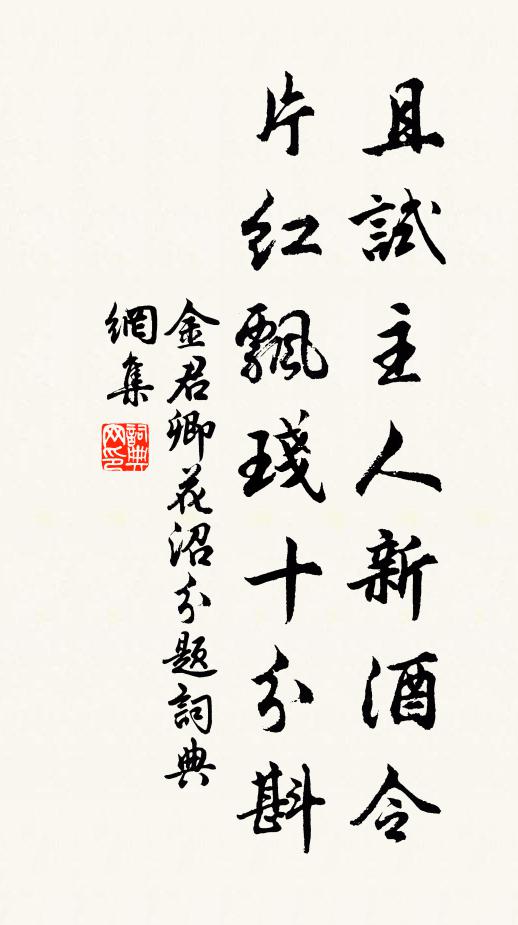 且試主人新酒令
片紅飄琖十分斟
金君卿花沼分題詞典
網集
詞典
网印